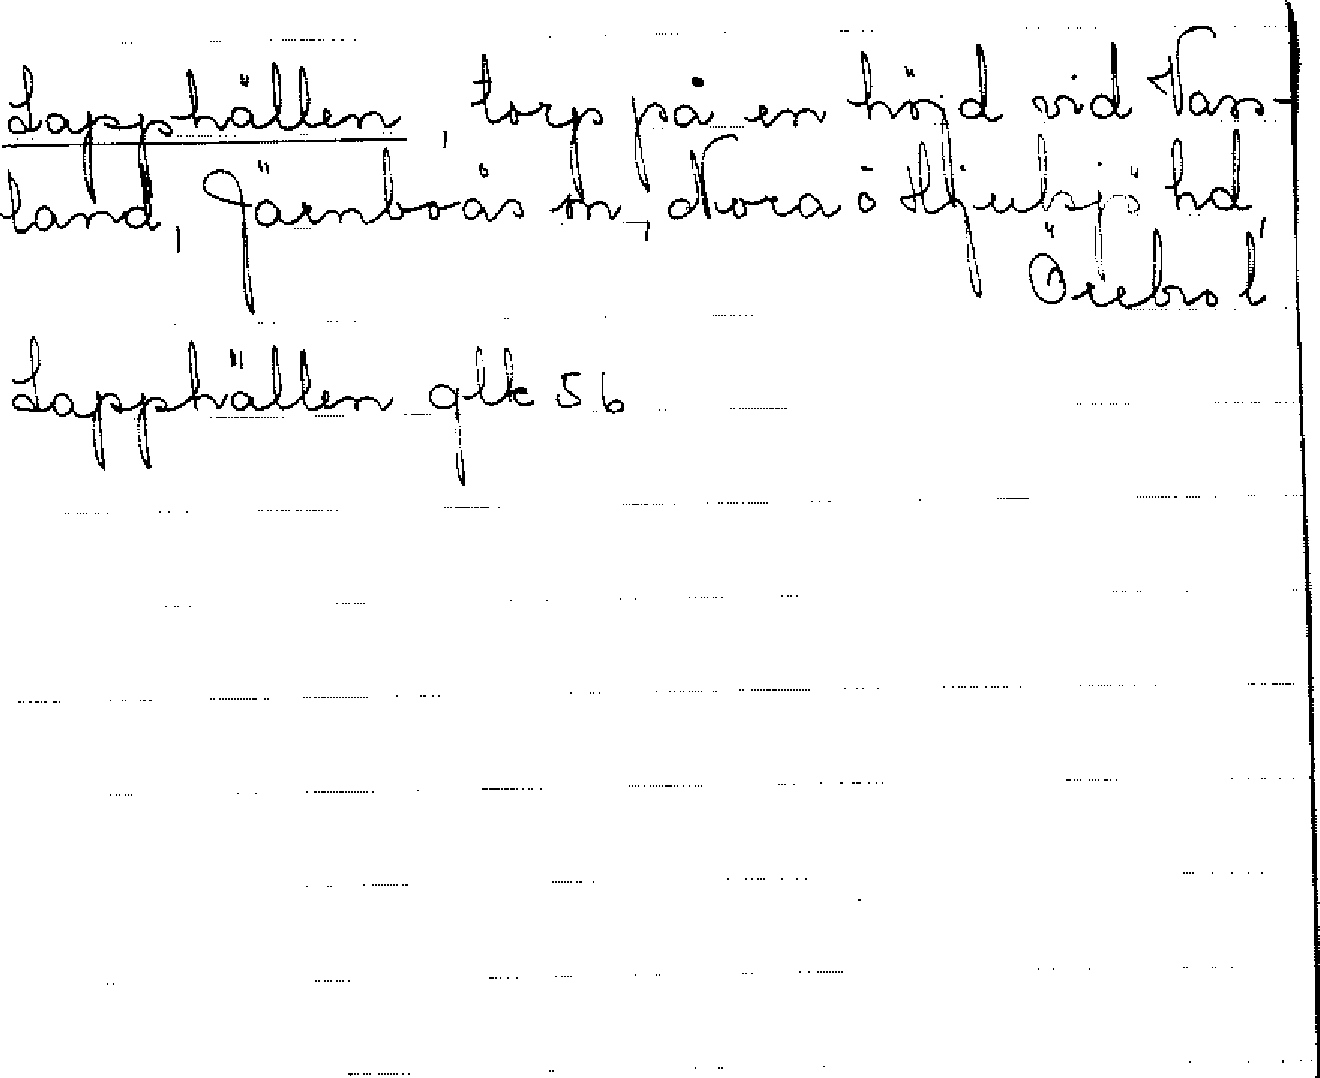 Lapphällen, torp på en höjd vid Vass-
land, Järnboås sn, Nora o Hjulsjö hd,
Örebro l
Lapphällen glk 5 b